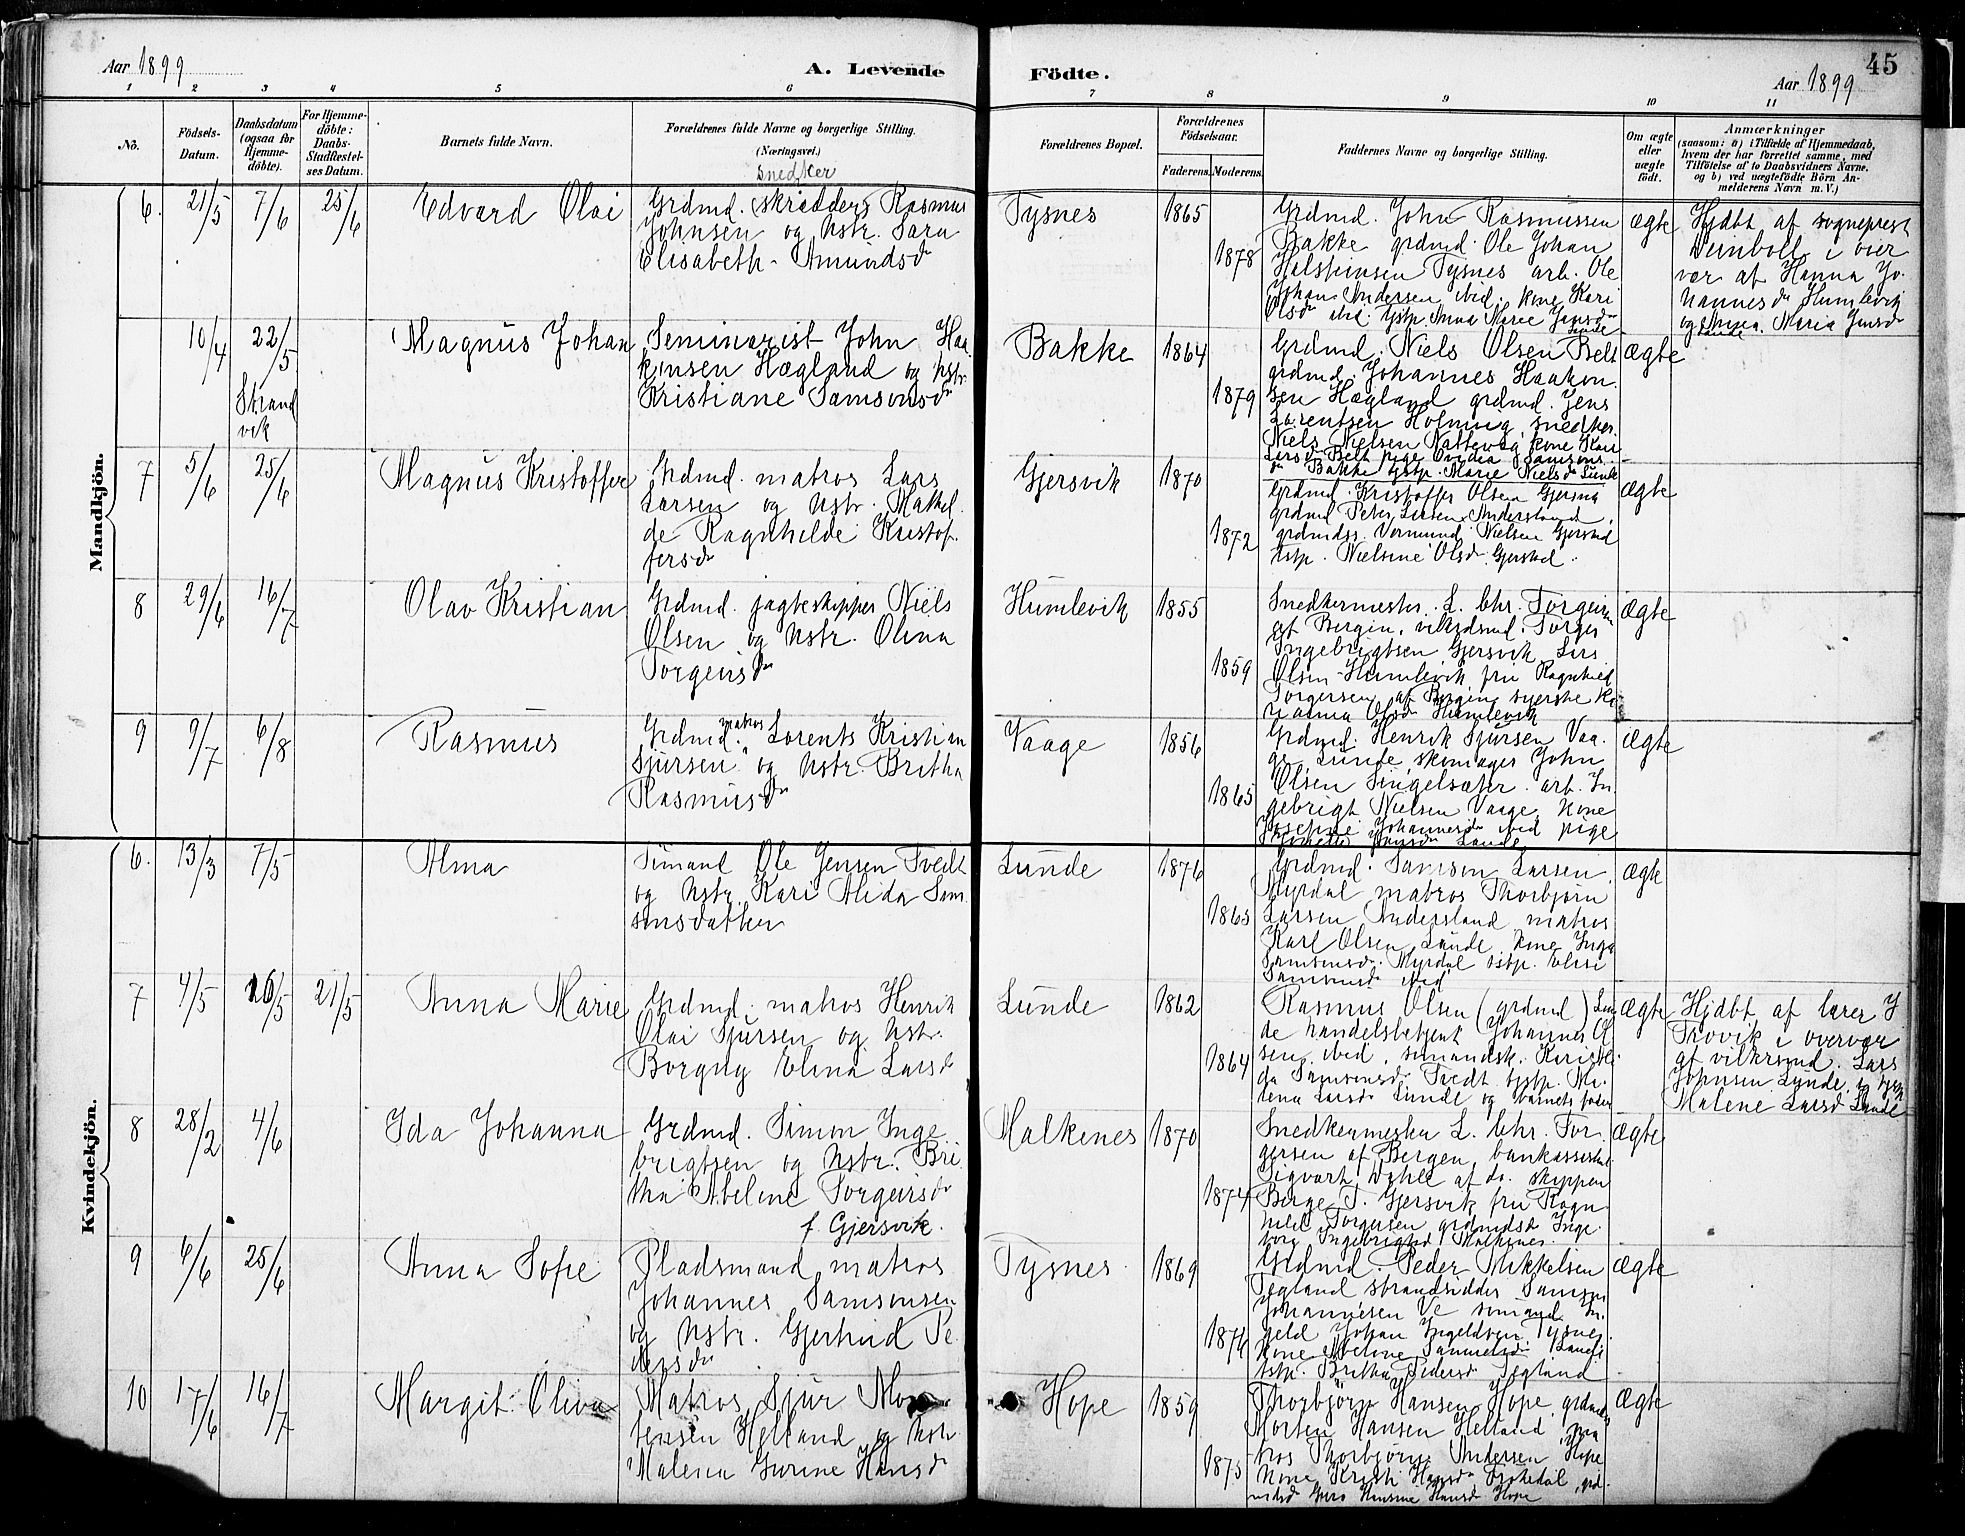 Aar 1899
A. Levende
Födte.
Aar 1899
45
1 2 3 4 5 6 7 8 9 10 11
No.
Födsels-
Datum.
Daabsdatum
(ogsaa for
Hjemme-
döbte).
For Hjemme-
döbte:
Daabs-
Stadfæstel-
ses Datum.
Barnets fulde Navn.
Forældrenes fulde Navne og borgerlige Stilling.
(Næringsvei.)
Forældrenes Bopæl.
Forældrenes
Födselsaar.
Faderens. Moderens.
Faddernes Navne og borgerlige Stilling.
Om ægte
eller
uægte
födt.
Anmærkninger
(saasom: a) i Tilfælde af Hjemmedaab,
hvem der har forrettet samme, med
Tilföielse af to Daabsvidners Navne.
og b) ved uægtefödte Börn An-
melderens Navn m. V.)
Mandkjön.
6. 21/5 7/6 25/6 Edvard Olai
snedker
Grdmd. skrædders Rasmus
Johnsen og hstr. Sara
Elisabeth Amundsdr
Tysnes 1865
1878
Grdmd. John Rasmussen
Bakke grdmd. Ole Johan
Halsteinsen Tysnes arb. Ole
Johan Andersen ibid. kone Kari
Olsdr ibid. tjstp. Anna Marie Jensdr
Lunde
ægte
Hjdbt af sogneprest
Deinboll i over
vær af Hanna Jo-
hannesdr Humlevik
og Anna Maria Jensdr
Lunde
10/4 22/5
Strand
vik
Magnus Johan
Seminarist John Haa-
konsen Hægland og hstr.
Kristiane Samsonsdr
Bakke 1864
1879
Grdmd. Niels Olsen Belt
grdmd. Johannes Haakon
sen Hægland grdmd. Jens
Lorentsen Holming, snedker
Niels Nielsen Nattevåg kone Kari
Larsdr Belt pige Ovidia Samsons
dr Bakke tjstp. Marie Nielsdr Lunde
ægte
7 5/6 25/6 Magnus Kristoffer
Grdmd. matros Lars
Larsen og hstr. Mathil-
de Ragnhilde Kristof-
fersdr
Gjersvik 1870
1872
Grdmd. Kristoffer Olsen
Grdmd Peter Larsen Anderstand
grdmdss. Nielsen Gjerstad
tstp. Nielsine Olsdr Gjerstad
ægte
8 29/6 16/7 Olav Kristian
Grdmd. jagteskipper Niels
Olsen og hstr. Olina
Torgeirsdr
Humlevik 1855
1859
Snedkermester L. Chr. Torgeirsen
af Bergen, Torger
Ingebrigtsen Gjersvik Lars
Olsen Humlevik fru Ragnhild
Torgersen af Bergen syerske Ka-
Olsdr Humlevik
ægte
9 9/7 6/8 Rasmus
Grdmd. matros Lorents Kristian
Sjursen og hstr. Britha
Rasmusdr
Vaage 1856
1865
Grdmd. Henrik Sjursen Vaa-
ge Lunde skomager John
Olsen Singelsæter arb. In-
gebrigt Nielsen Vaage kone
Josefine Johannesdr ibid pige
Jensdr Lunde
ægte
Kvindekjön.
6. 13/3 7/5 Alma
Sömand Ole Jensen Tvedt
og hstr. Kari Alida Sam
sonsdatter
Lunde 1876
1865
Grdmd. Samson Larsen
Myrdal matros Thorbjörn
Larsen Andersland matros
Karl Olsen Lunde kone Inga
Samsonsdr Myrdal tstp. Elisi
Samsonsdr ibid
ægte
7 4/5 16/5 21/5 Anna Marie
Grdmd. matros Henrik
Olai Sjursen og hstr.
Borgny Elina Larsdr
Lunde 1862
1864
Rasmus Olsen (grdmd) Lun
de handelsbetjent Johannes Ol
sen ibid, sömandsk. Kari Ali
da Samsonsdr Tvedt tjstp. Ma-
lena Larsdr Lunde og barnets fader
ægte
Hjdbt af lærer J
Trovik i overvær
af vilkrsmd. Lars
Johnsen Lunde og tjstp.
Malene Larsdr Lunde
8 28/2 4/6 Ida Johanna
Grdmd. Simon Inge
brigtsen og hstr. Bri
tha Abeline Torgeirsdr
f. Gjersvik.
Malkenes 1870
1874
Snedkermester L. Chr. Tor
gersen af Bergen, bankassistent
Sigvart Dahle af do. skipper
Berge T. Gjersvik fru Ragn
hild Torgersen grdmdsd Inge
borg Ingebrigtsd Malkenes
ægte
9 6/6 25/6 Anna Sofie
Pladsmand matros
Johannes Samsonsen
og hstr. Gjertrud Pe
dersdr
Tysnes 1869
1874
Grdmd. Peder Mikkelsen
Tegland strandsidder Samson
Johannesen Ve sömand In-
geld Johan Ingeldsen Tysnes
kone Abelone Samuelsdr
tstp. Britha Pedersdr Tegland
ægte
10 17/6 16/7 Margit Oliva
Matros Sjur Mor
tensen Helland og hstr
Malena Gurine Hansdr
Hope 1859
1875
Thorbjörn Hansen Hope, grdmd
Morten Hansen Helland, ma
tros Thorbjörn Andersen Hope
kone Kristi Hansdr, grd-
mdsd Hansine Hansdr Hope
ægte